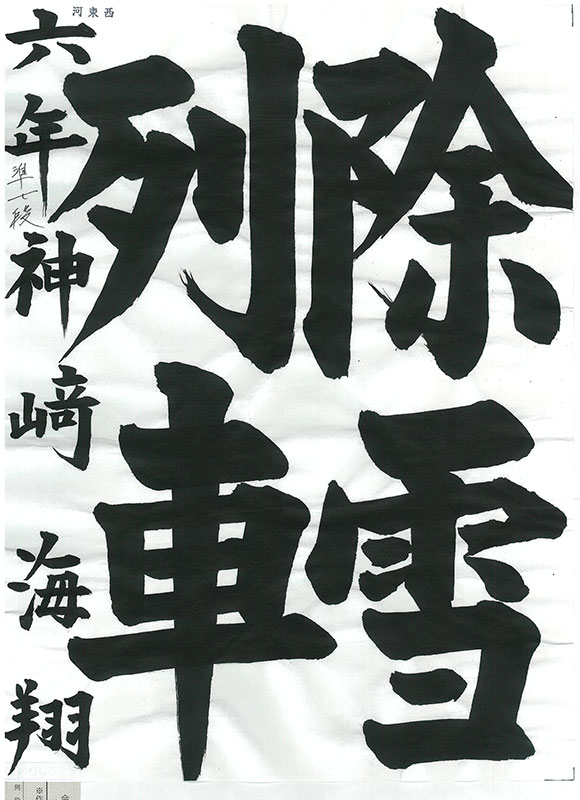 河東西
除雪
列車
六年 神﨑海翔
準七段